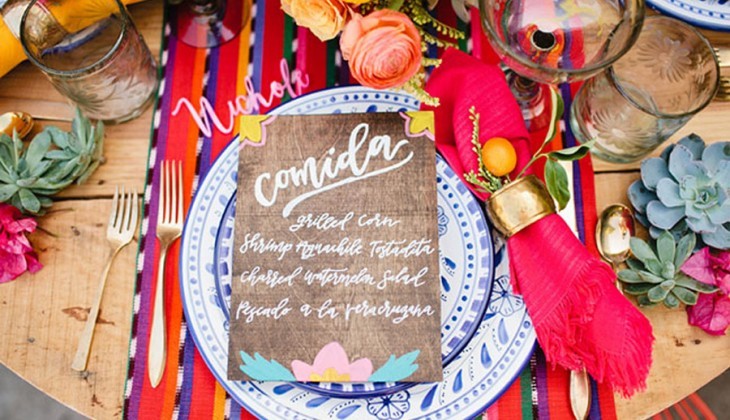 Nichole
comida
grilled corn
Shrimp Aguachile Tostadita
charred watermelon Salad
Pescado a la veracruzana